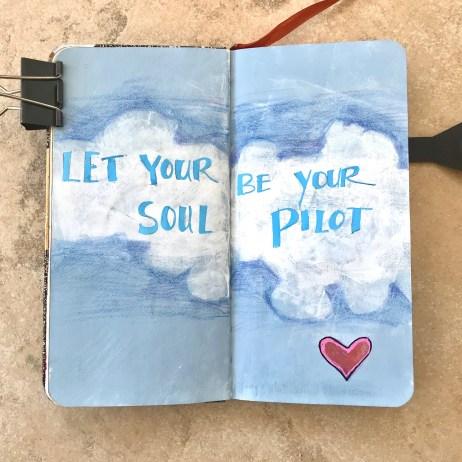 LET YOUR
SOUL
BE YOUR
PILOT